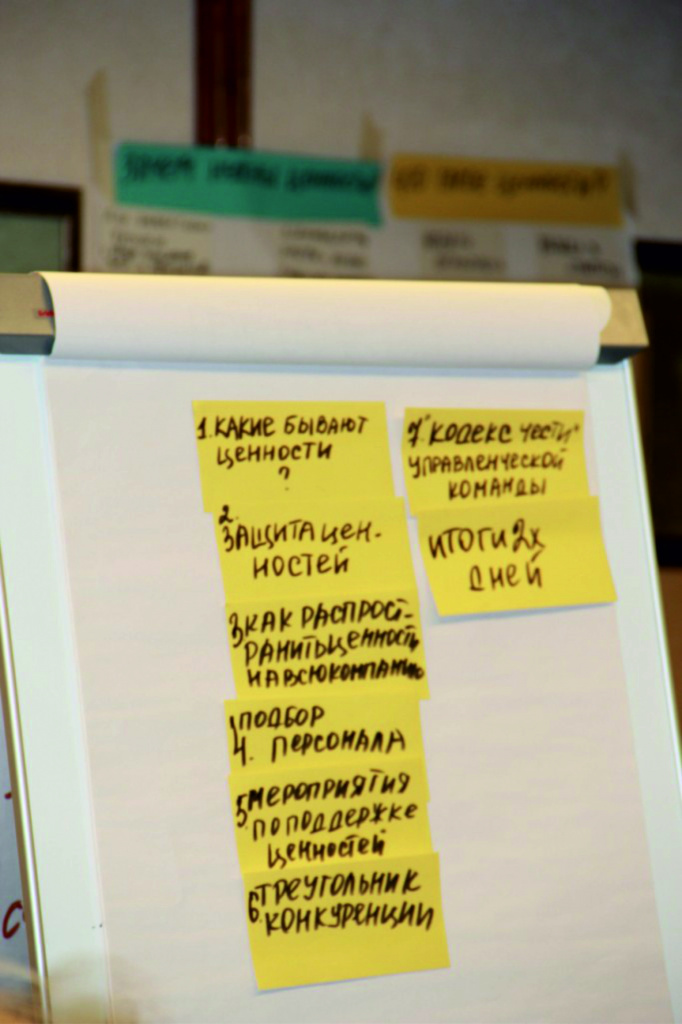 1. КАКИЕ БЫВАЮТ
ЦЕННОСТИ
?
2.
ЗАЩИТА ЦЕН-
НОСТЕЙ
3 КАК РАСПРОСТ-
РАНИТЬ ЦЕННОСТЬ
НА ВСЮ КОМПАНИЮ
ПОДБОР
4. ПЕРСОНАЛА
5. МЕРОПРИЯТИЯ
ПО ПОДДЕРЖКЕ
ЦЕННОСТЕЙ
6. ТРЕУГОЛЬНИК
КОНКУРЕНЦИИ
7. "КОДЕКС ЧЕСТИ"
УПРАВЛЕНЧЕСКОЙ
КОМАНДЫ
ИТОГИ 2х
ДНЕЙ